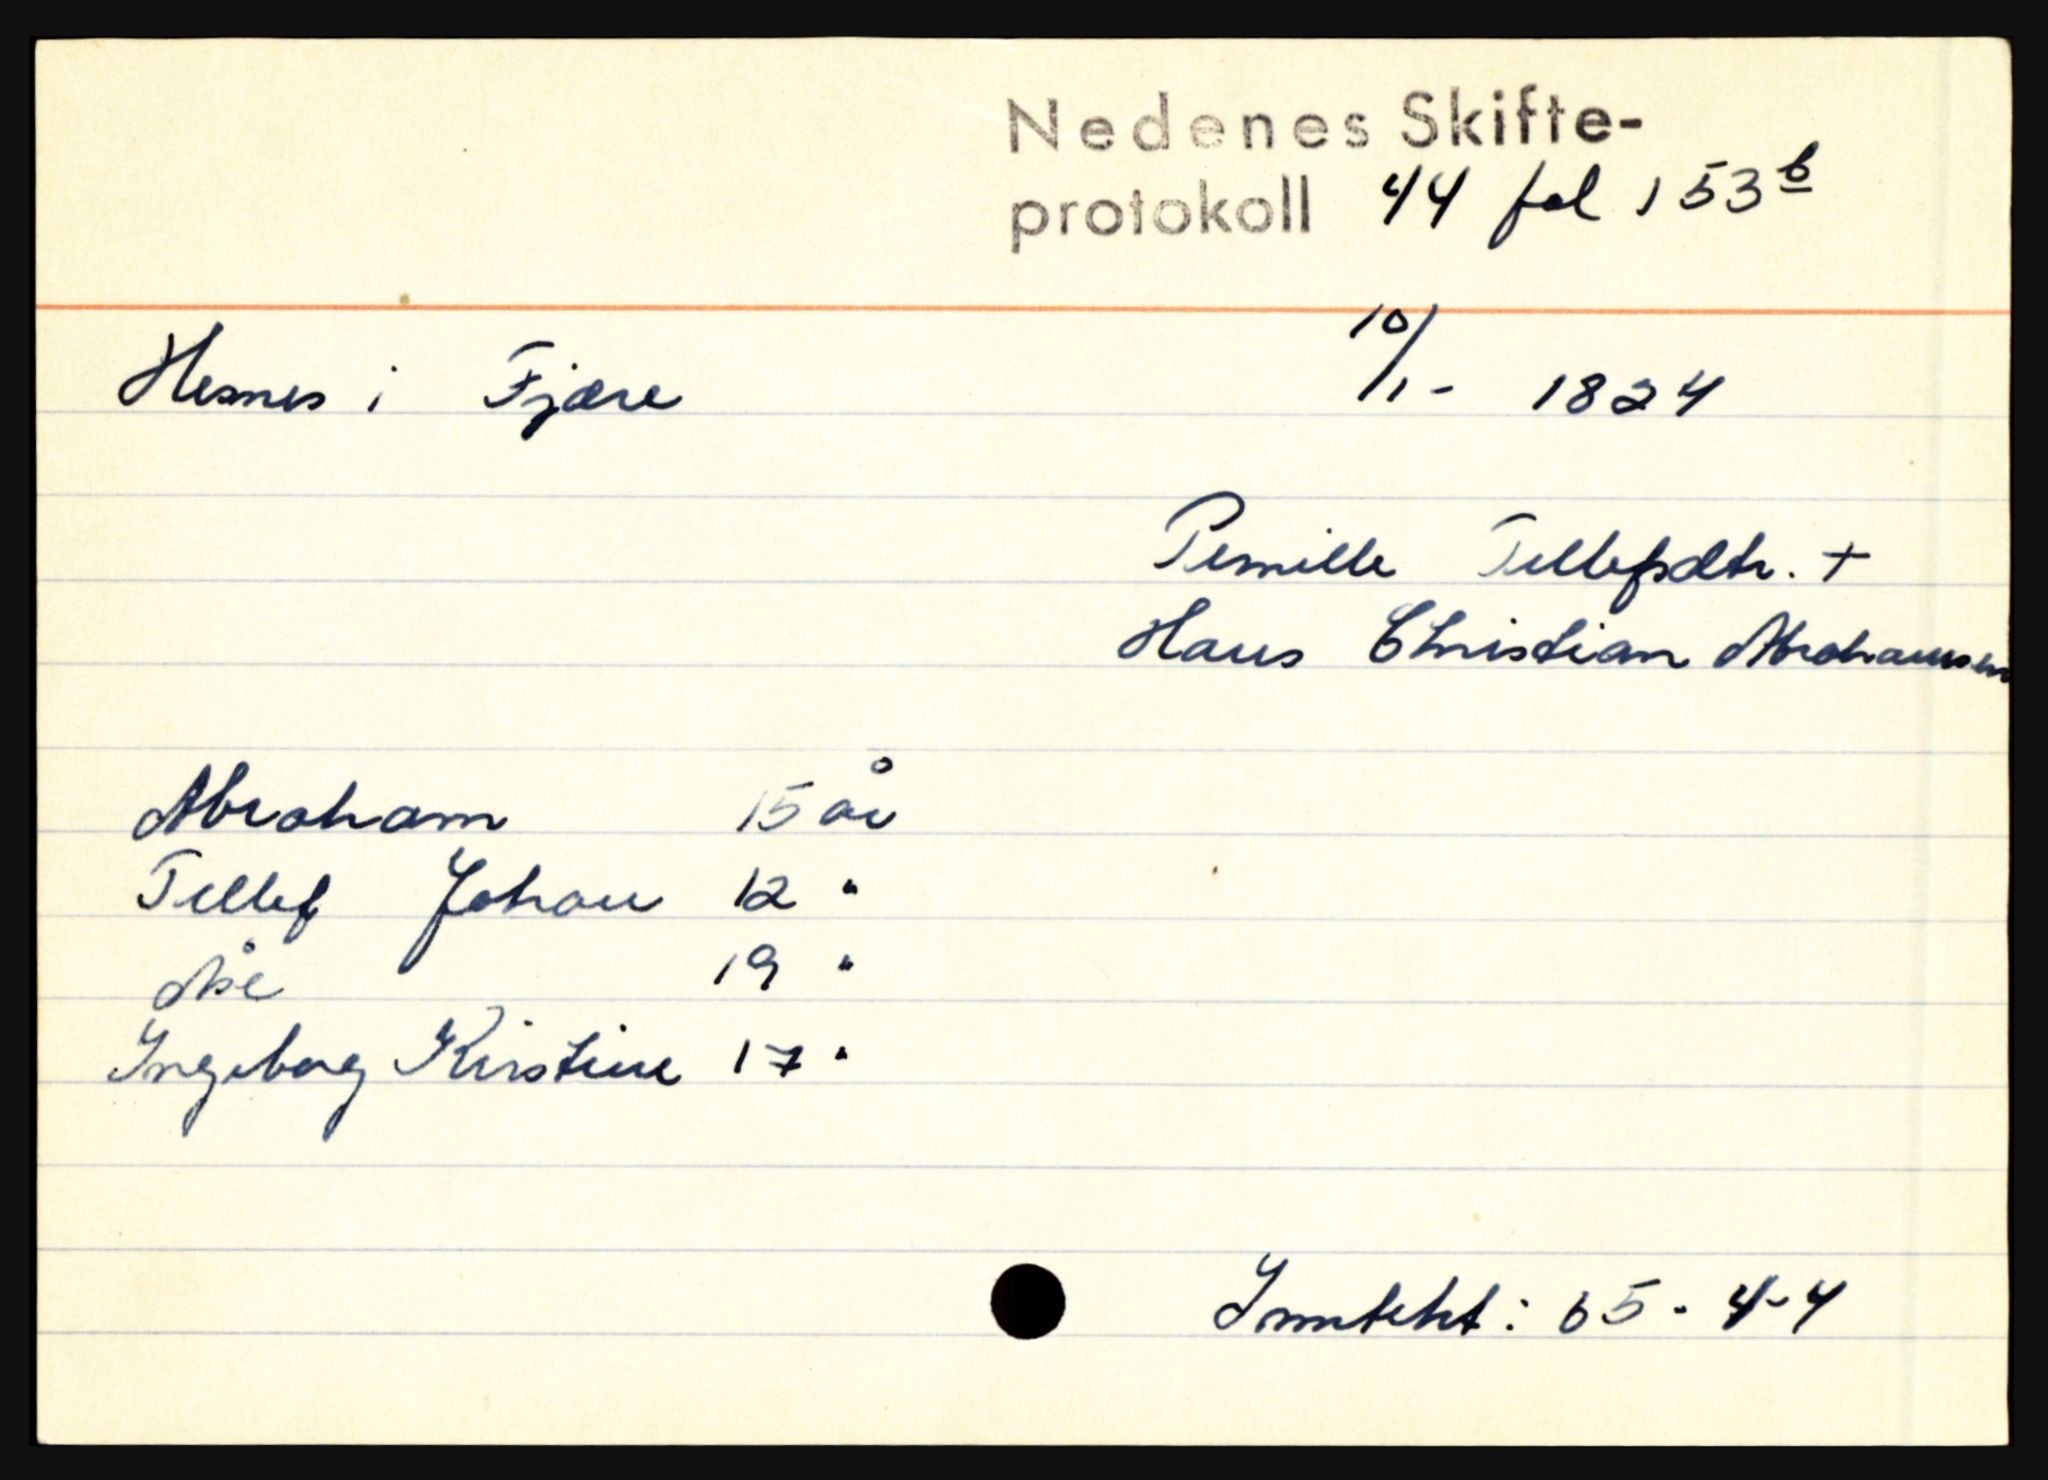 Nedenes Skifte-
protokoll 44 fol 153 b
Hesnes i Fjære 10/1- 1824
Pernille Tellefsdtr. +
Hans Christian Abrahamsen
Abraham 15 år
Tellef Johan 12 "
Åse 19 "
Ingeborg Kirstine 17 "
Inntekt: 65-4-4